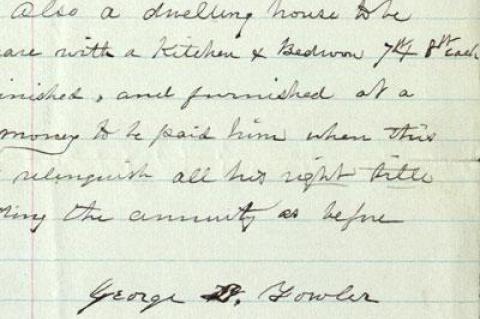 Also a dwelling house to be
are with a Kitchen & Bedroom 7 ft 8 ft each
inished, and furnished at a
money to be paid him when this
relinquish all his right title
ring the annuity as before
George D. Fowler